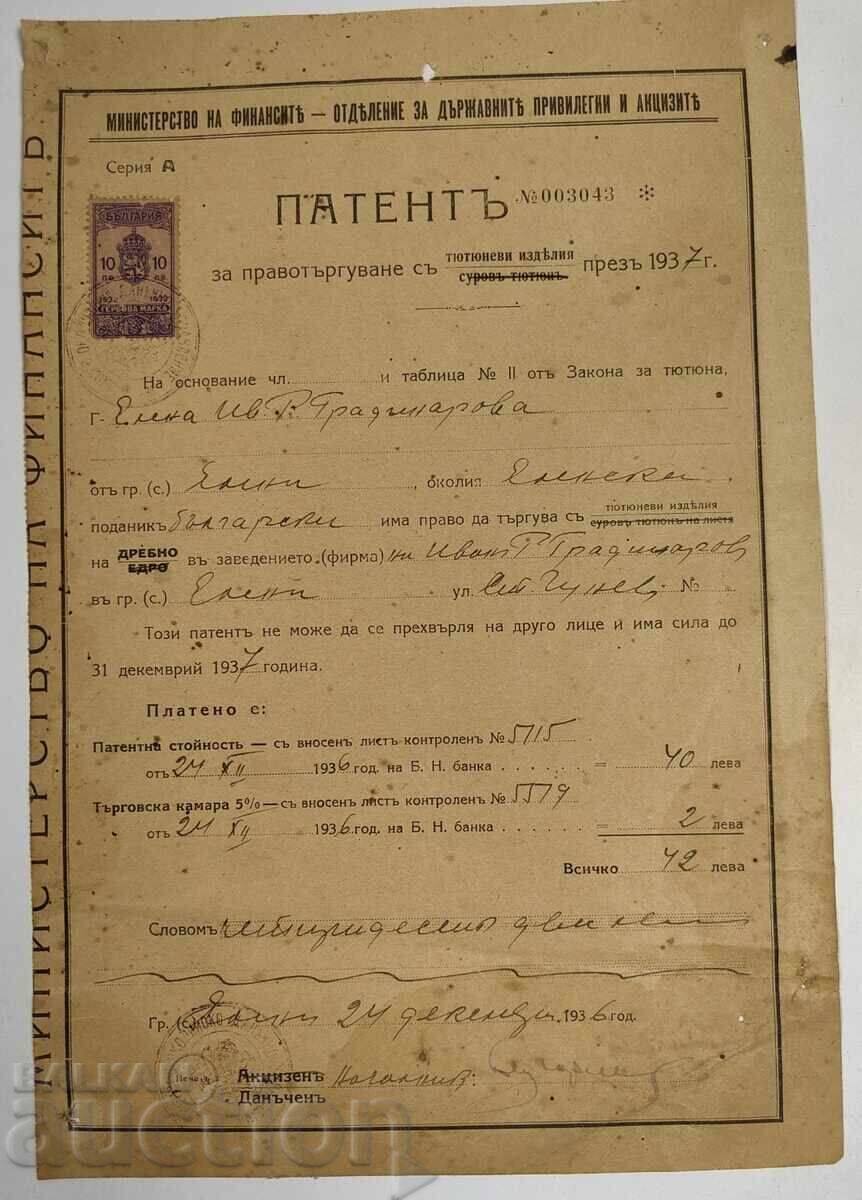 МИНИСТЕРСТВО НА ФИНАНСИТѢ — ОТДѢЛЕНИЕ ЗА ДЪРЖАВНИТѢ ПРИВИЛЕГИИ И АКЦИЗИТѢ
Серия А
ПАТЕНТЪ №003043 *
БЪЛГАРИЯ
10 10
ЛВ ЛВ
1932 1932
ГЕРБОВА МАРКА
за правотъргуване съ тютюневи издѣлия суровъ тютюнъ презъ 1937 г.
На основание чл. и таблица № II отъ Закона за тютюна,
Г- Елена Ив. Р. Градинарова
отъ гр. (с.) Елена, околия Еленска
поданикъ български има право да търгува съ тютюневи издѣлия суровъ тютюнъ на листа
на ДРЕБНО ЕДРО въ заведението (фирма) на Иванъ Р. Градинаров
въ гр. (с.) Елена ул. №
Този патентъ не може да се прехвърля на друго лице и има сила до
31 декемврий 1937 година.
Платено е:
Патентна стойность — съ вносенъ листъ контроленъ № 5115
отъ 24 XII 1936 год. на Б. Н. банка = 40 лева
Търговска камара 5% — съ вносенъ листъ контроленъ № 5579
отъ 24 XII 1936 год. на Б. Н. банка = 2 лева
Всичко 42 лева
Словомъ четиридесеть два лева
Гр. (с.) Елена 24 декемврий 1936 год.
Печать
Акцизенъ Началникъ:
Данъченъ
МИНИСТЕРСТВО НА ФИНАНСИТѢ
БАЛКАН
auction